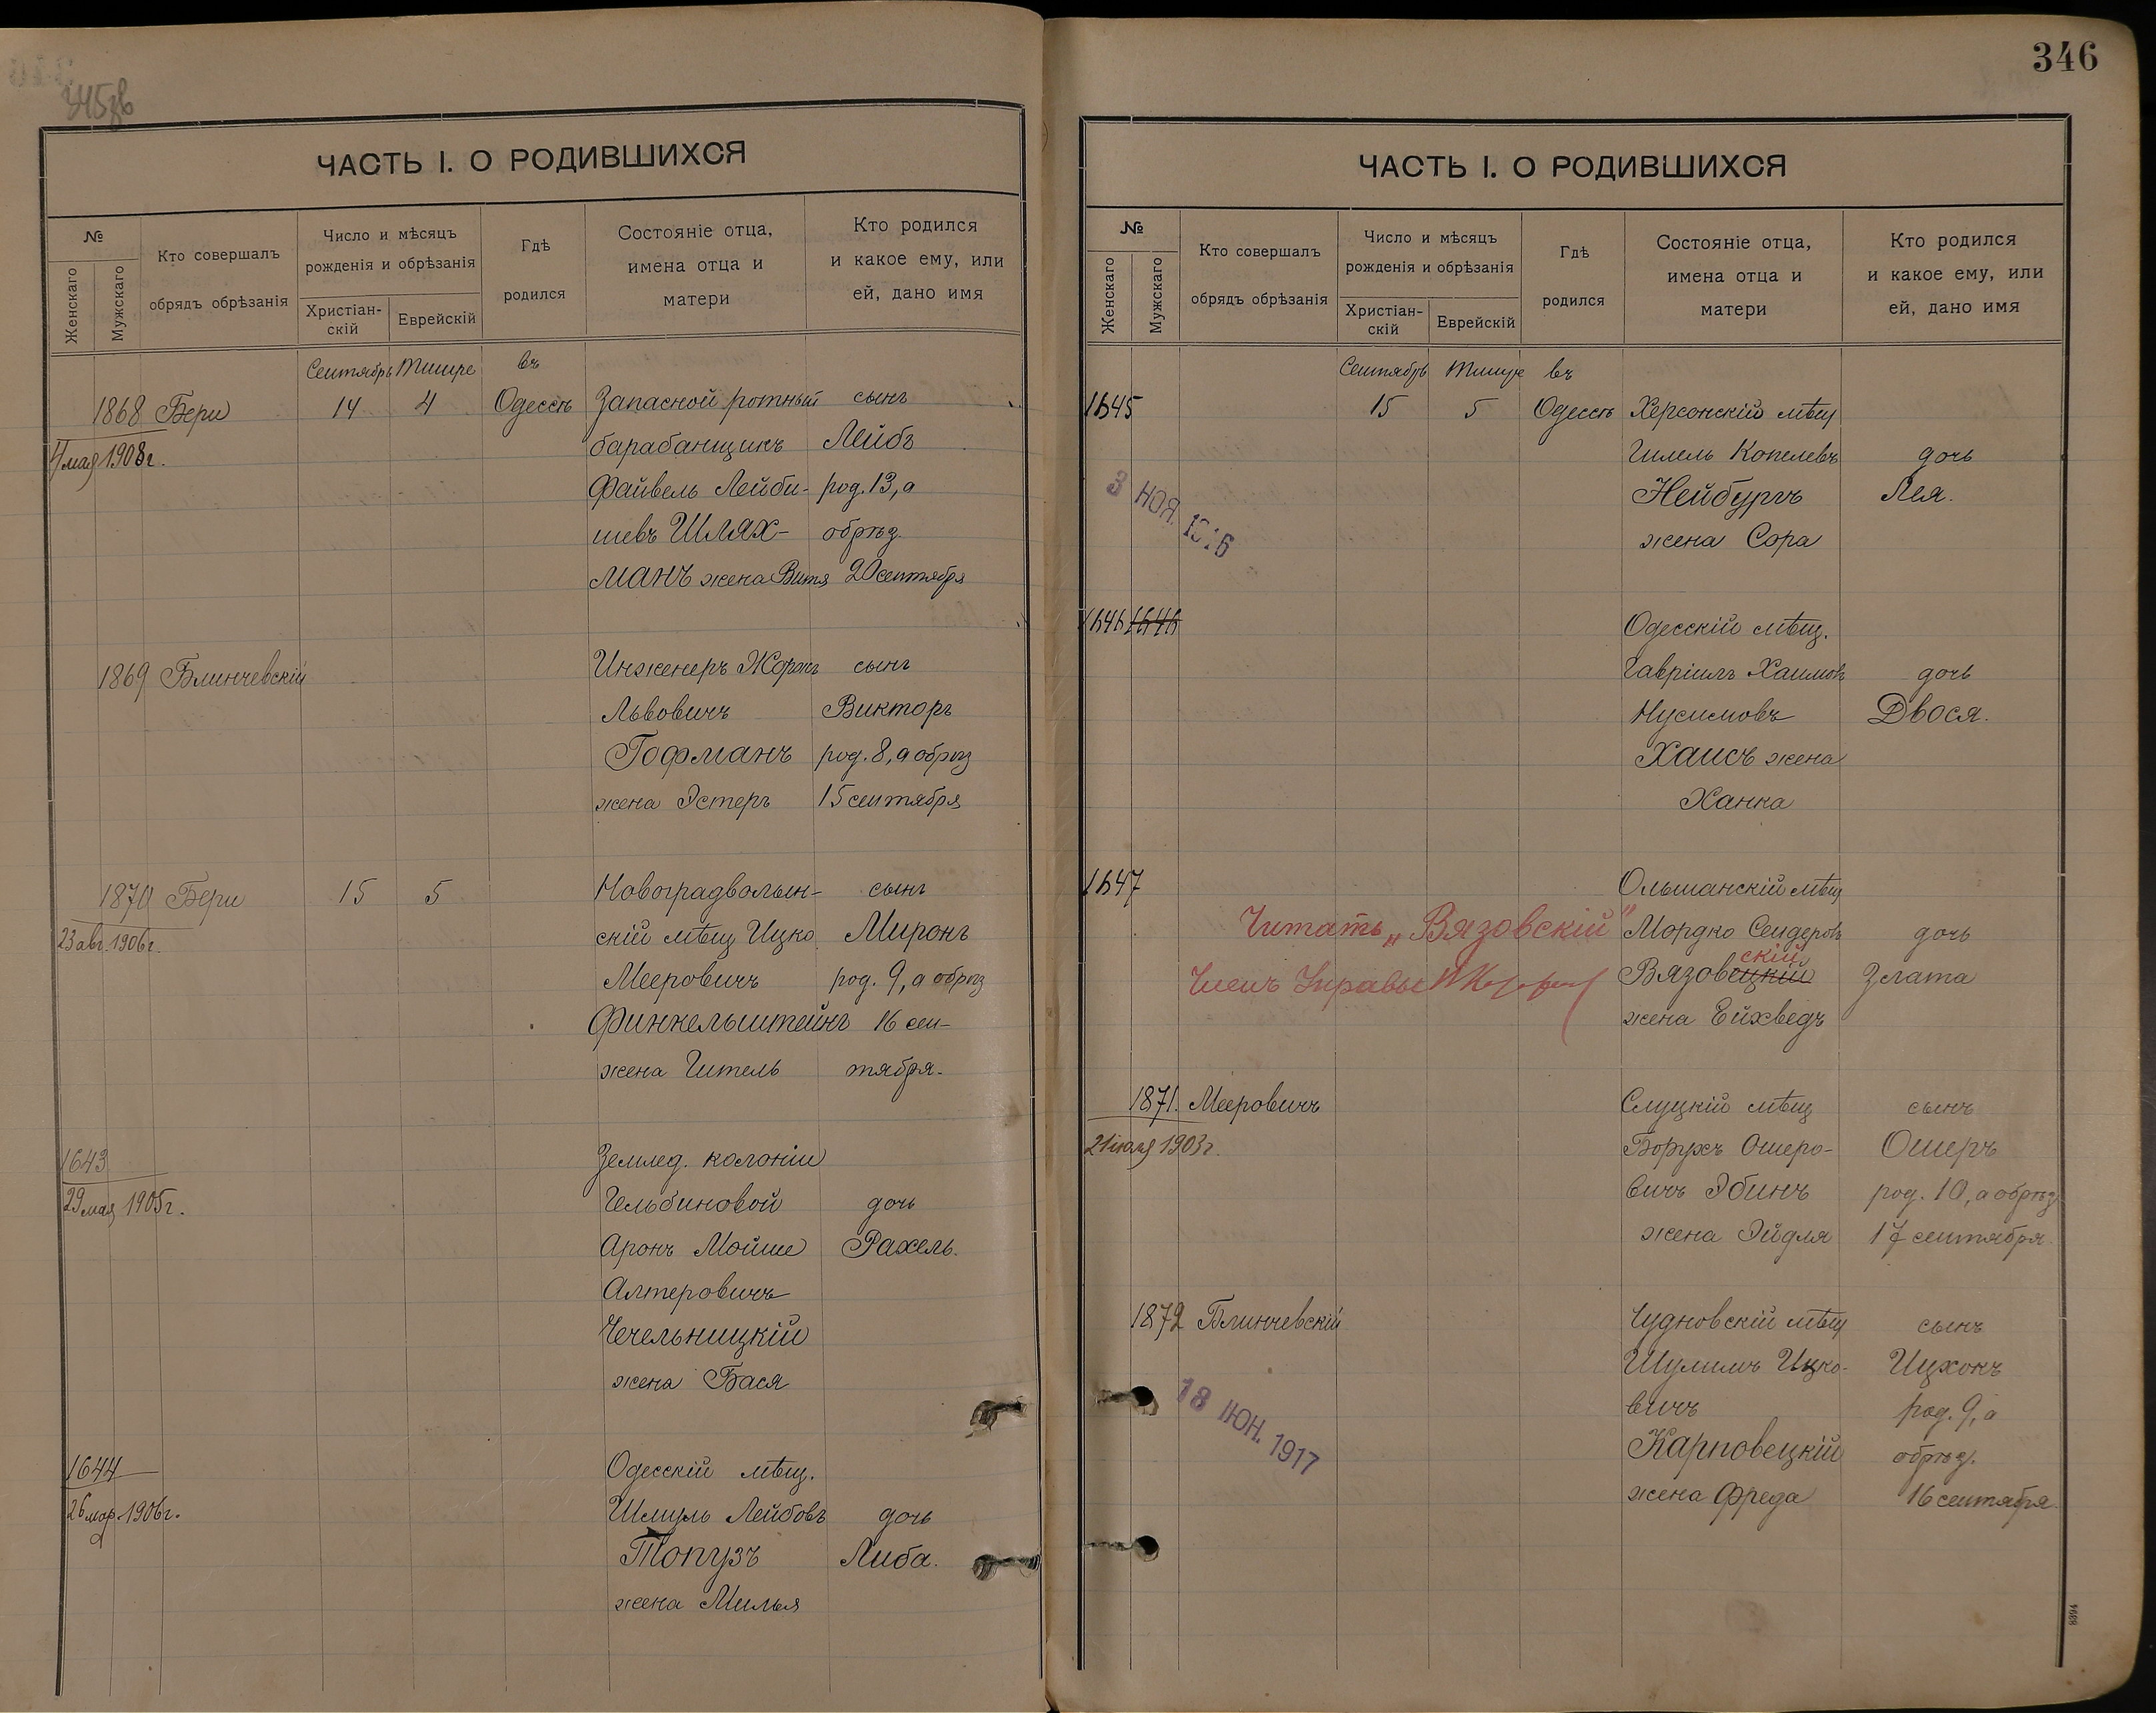 345об
ЧАСТЬ I. О РОДИВШИХСЯ
№
Женскаго
Мужскаго
Кто совершалъ
обрядъ обрѣзанія
Число и мѣсяцъ
рожденія и обрѣзанія
Христіан-
скій
Еврейскій
Гдѣ
родился
Состояніе отца,
имена отца и
матери
Кто родился
и какое ему, или
ей, дано имя
Сентябрь Тишре въ
1868 Бери 14 4 Одессѣ Запасной ротный сынъ
4 мая 1908 г. барабанщикъ Лейбъ
Файвель Лейби- род. 13, а
шевъ Шлях- обрѣз.
манъ жена Витя 20 сентября
1869 Блинчевскій Инженеръ Жоржъ сынъ
Львовичъ Викторъ
Гофманъ род. 8, а обрѣз
жена Эстеръ 15 сентября
1870 Бери 15 5 Новоградволын- сынъ
23 авг. 1906 г. скій мѣщ Ицко Миронъ
Мееровичъ род. 9, а обрѣз
Финкельштейнъ 16 сен-
жена Гитель тября.
1643 Землед. колоніи
29 мая 1905 г. Гельбиновой дочь
Аронъ Мойше Рахель.
Алтеровичъ
Чечельницкій
жена Бася
1644 Одесскій мѣщ.
26 мар. 1906 г. Шмуль Лейбовъ дочь
Топузъ Либа.
жена Милья
346
ЧАСТЬ I. О РОДИВШИХСЯ
№
Женскаго
Мужскаго
Кто совершалъ
обрядъ обрѣзанія
Число и мѣсяцъ
рожденія и обрѣзанія
Христіан-
скій
Еврейскій
Гдѣ
родился
Состояніе отца,
имена отца и
матери
Кто родился
и какое ему, или
ей, дано имя
Сентябрь Тишре въ
1645 15 5 Одессѣ Херсонскій мѣщ
Гилель Копелевъ дочь
3 НОЯ. 1916 Нейбургъ Лея.
жена Сора
1646 1646 Одесскій мѣщ.
Гавріилъ Хаимовъ дочь
Нусимовъ Двося.
Хаисъ жена
Ханка
1647 Ольшанскій мѣщ
Читать „Вязовскій" Мордко Сендеровъ дочь
скій
Членъ Управы Вязовецкій Злата
жена Ейхведъ
1871. Мееровичъ Слуцкій мѣщ сынъ
21 іюля 1903 г. Борухъ Ошеро- Ошеръ
вичъ Эбинъ род. 10, а обрѣз
жена Эйдля 17 сентября
1872 Блинчевскій Чудновскій мѣщ сынъ
Шулимъ Ицко- Ицхокъ
18 ІЮН. 1917 вичъ род. 9, а
Карповецкій обрѣз.
жена Фреда 16 сентября
8394